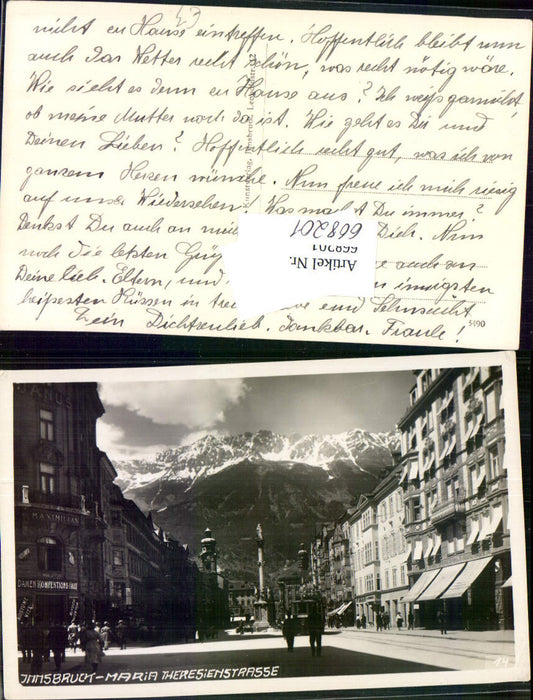 43
nicht en Hause eintreffen. Hoffentlich bleibt nun
auch das Wetter recht schön, was recht nötig wäre.
Wie sieht es denn en Hause aus? Ich weiß garnicht,
ob meine Mutter noch da ist. Wie geht es Dir und
Deinen Lieben? Hoffentlich recht gut, was ich von
ganzem Herzen wünsche. Nun freue ich mich riesig
auf unser Wiedersehen! Was machst Du immer?
Denkst Du auch an mich Dich. Nun
noch die letzten Grü auch an
Deine lieb. Eltern, und innigsten
heißesten Küssen in und Sehnsucht
Dein Dichsenlieb. dankbar. Fraule!
Artikel Nr.
668201
668201
5490
MAXIMILIAN
DAMEN KONFEKTIONSHAUS
INNSBRUCK-MARIA THERESIENSTRASSE
14